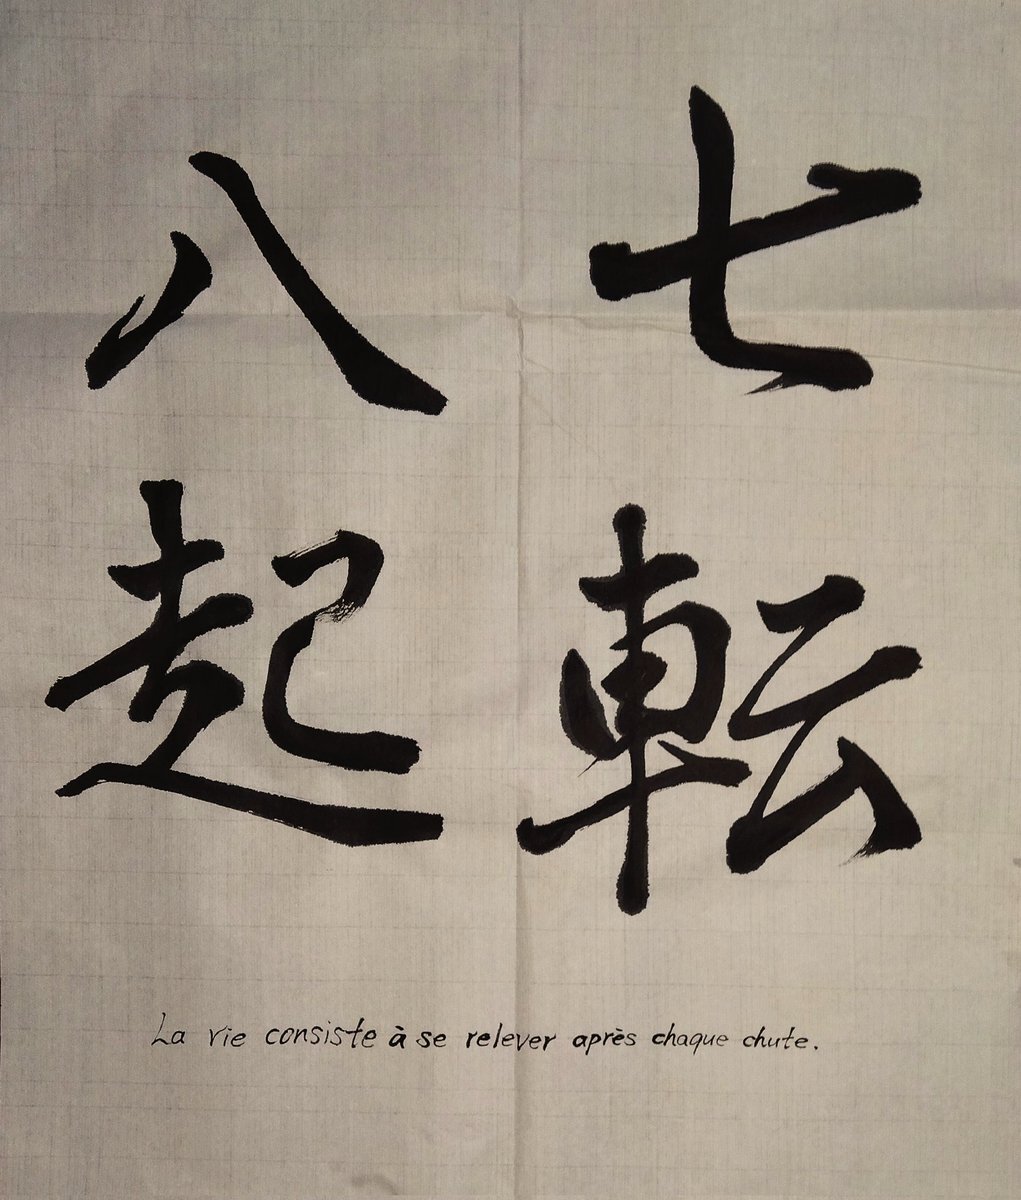 七転
八起
La vie consiste à se relever après chaque chute.